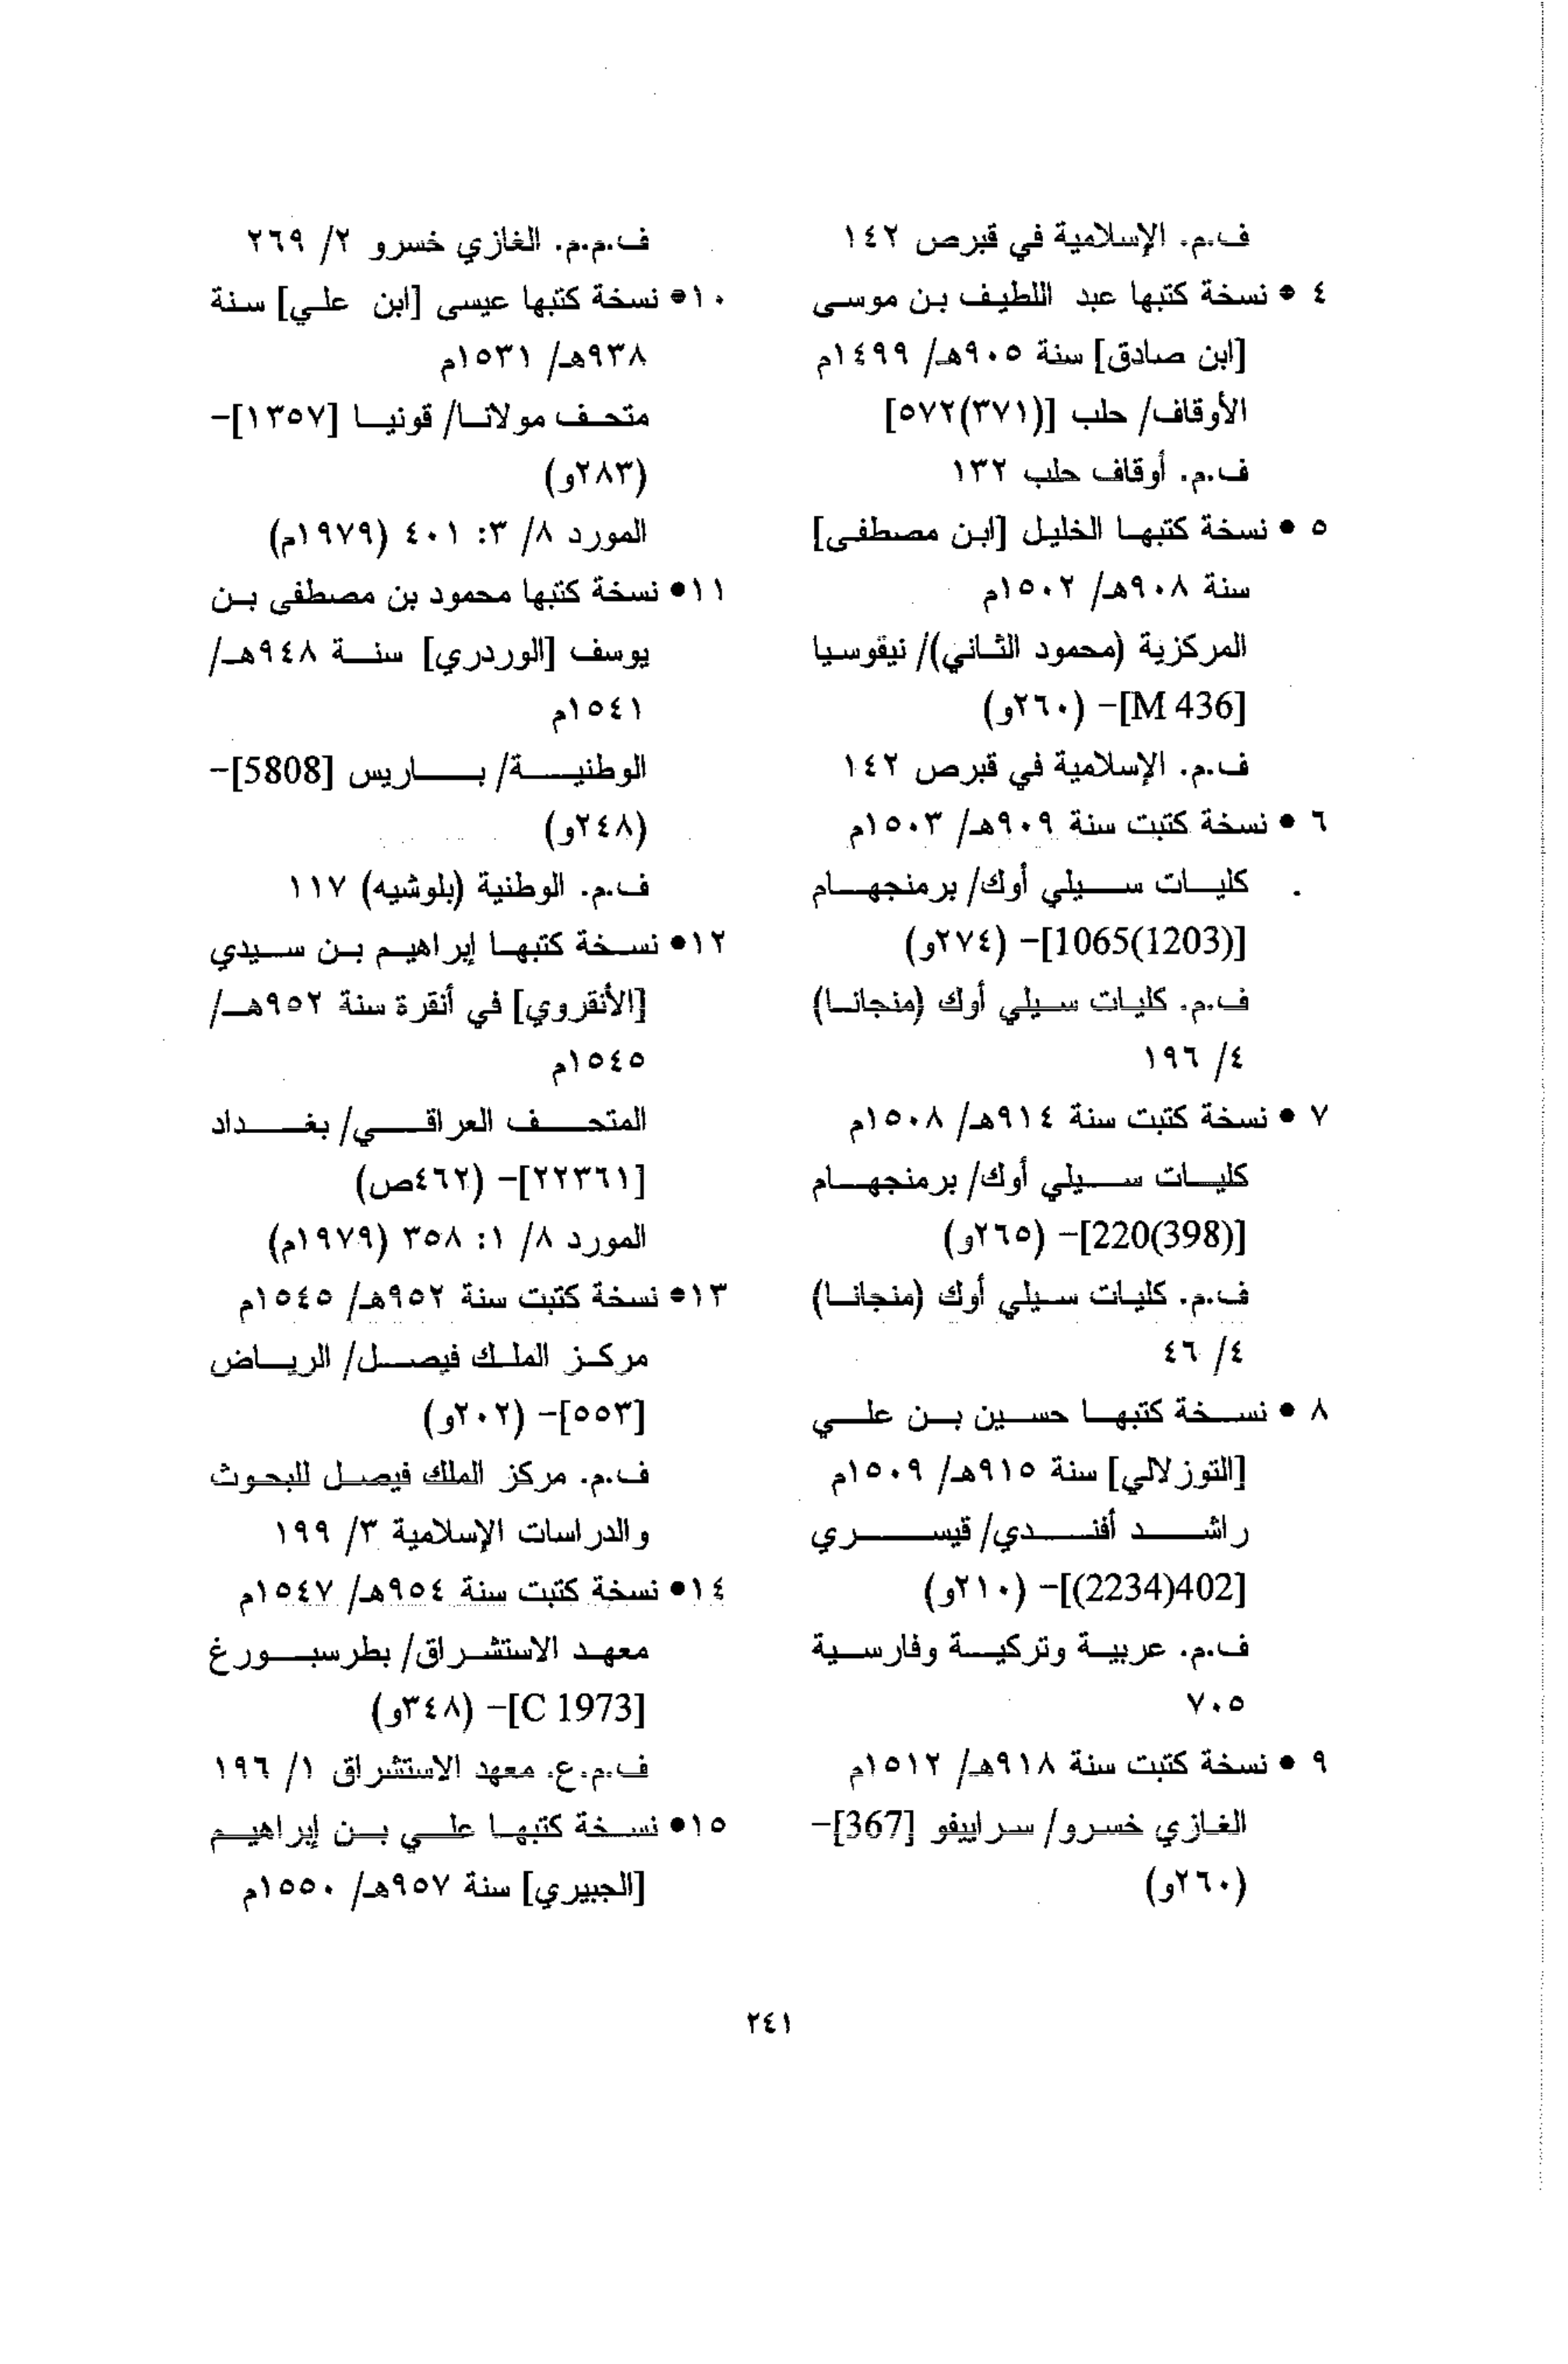 ف.م. الإسلامية في قبرص ١٤٢
٤ • نسخة كتبها عبد اللطيف بن موسى
[ابن صادق] سنة ٩٠٥هـ/ ١٤٩٩م
الأوقاف/ حلب [(٣٧١)٥٧٢]
ف.م. أوقاف حلب ١٣٢
٥ • نسخة كتبها الخليل [ابن مصطفى]
سنة ٩٠٨هـ/ ١٥٠٢م
المركزية (محمود الثاني)/ نيقوسيا
[M 436]- (٢٦٠و)
ف.م. الإسلامية في قبرص ١٤٢
٦ • نسخة كتبت سنة ٩٠٩هـ/ ١٥٠٣م
كليات سيلي أوك/ برمنجهام
[1065(1203)]- (٢٧٤و)
ف.م. كليات سيلي أوك (منجانا)
٤/ ١٩٦
٧ • نسخة كتبت سنة ٩١٤هـ/ ١٥٠٨م
كليات سيلي أوك/ برمنجهام
[220(398)]- (٢٦٥و)
ف.م. كليات سيلي أوك (منجانا)
٤/ ٤٦
٨ • نسخة كتبها حسين بن علي
[التوزلالي] سنة ٩١٥هـ/ ١٥٠٩م
راشد أفندي/ قيسري
[402(2234)]- (٢١٠و)
ف.م. عربية وتركية وفارسية
٧٠٥
٩ • نسخة كتبت سنة ٩١٨هـ/ ١٥١٢م
الغازي خسرو/ سراييفو [367]-
(٢٦٠و)
ف.م.م. الغازي خسرو ٢/ ٢٦٩
١٠• نسخة كتبها عيسى [ابن علي] سنة
٩٣٨هـ/ ١٥٣١م
متحف مولانا/ قونيا [١٣٥٧]-
(٢٨٣و)
المورد ٨/ ٣: ٤٠١ (١٩٧٩م)
١١• نسخة كتبها محمود بن مصطفى بن
يوسف [الوردري] سنة ٩٤٨هـ/
١٥٤١م
الوطنية/ باريس [5808]-
(٢٤٨و)
ف.م. الوطنية (بلوشيه) ١١٧
١٢• نسخة كتبها إبراهيم بن سيدي
[الأنقروي] في أنقرة سنة ٩٥٢هـ/
١٥٤٥م
المتحف العراقي/ بغداد
[٢٢٣٦١]- (٤٦٢ص)
المورد ٨/ ١: ٣٥٨ (١٩٧٩م)
١٣• نسخة كتبت سنة ٩٥٢هـ/ ١٥٤٥م
مركز الملك فيصل/ الرياض
[٥٥٣]- (٢٠٢و)
ف.م. مركز الملك فيصل للبحوث
والدراسات الإسلامية ٣/ ١٩٩
١٤• نسخة كتبت سنة ٩٥٤هـ/ ١٥٤٧م
معهد الاستشراق/ بطرسبورغ
[C 1973]- (٣٤٨و)
ف.م.ع. معهد الاستشراق ١/ ١٩٦
١٥• نسخة كتبها علي بن إبراهيم
[الجبيري] سنة ٩٥٧هـ/ ١٥٥٠م
٢٤١